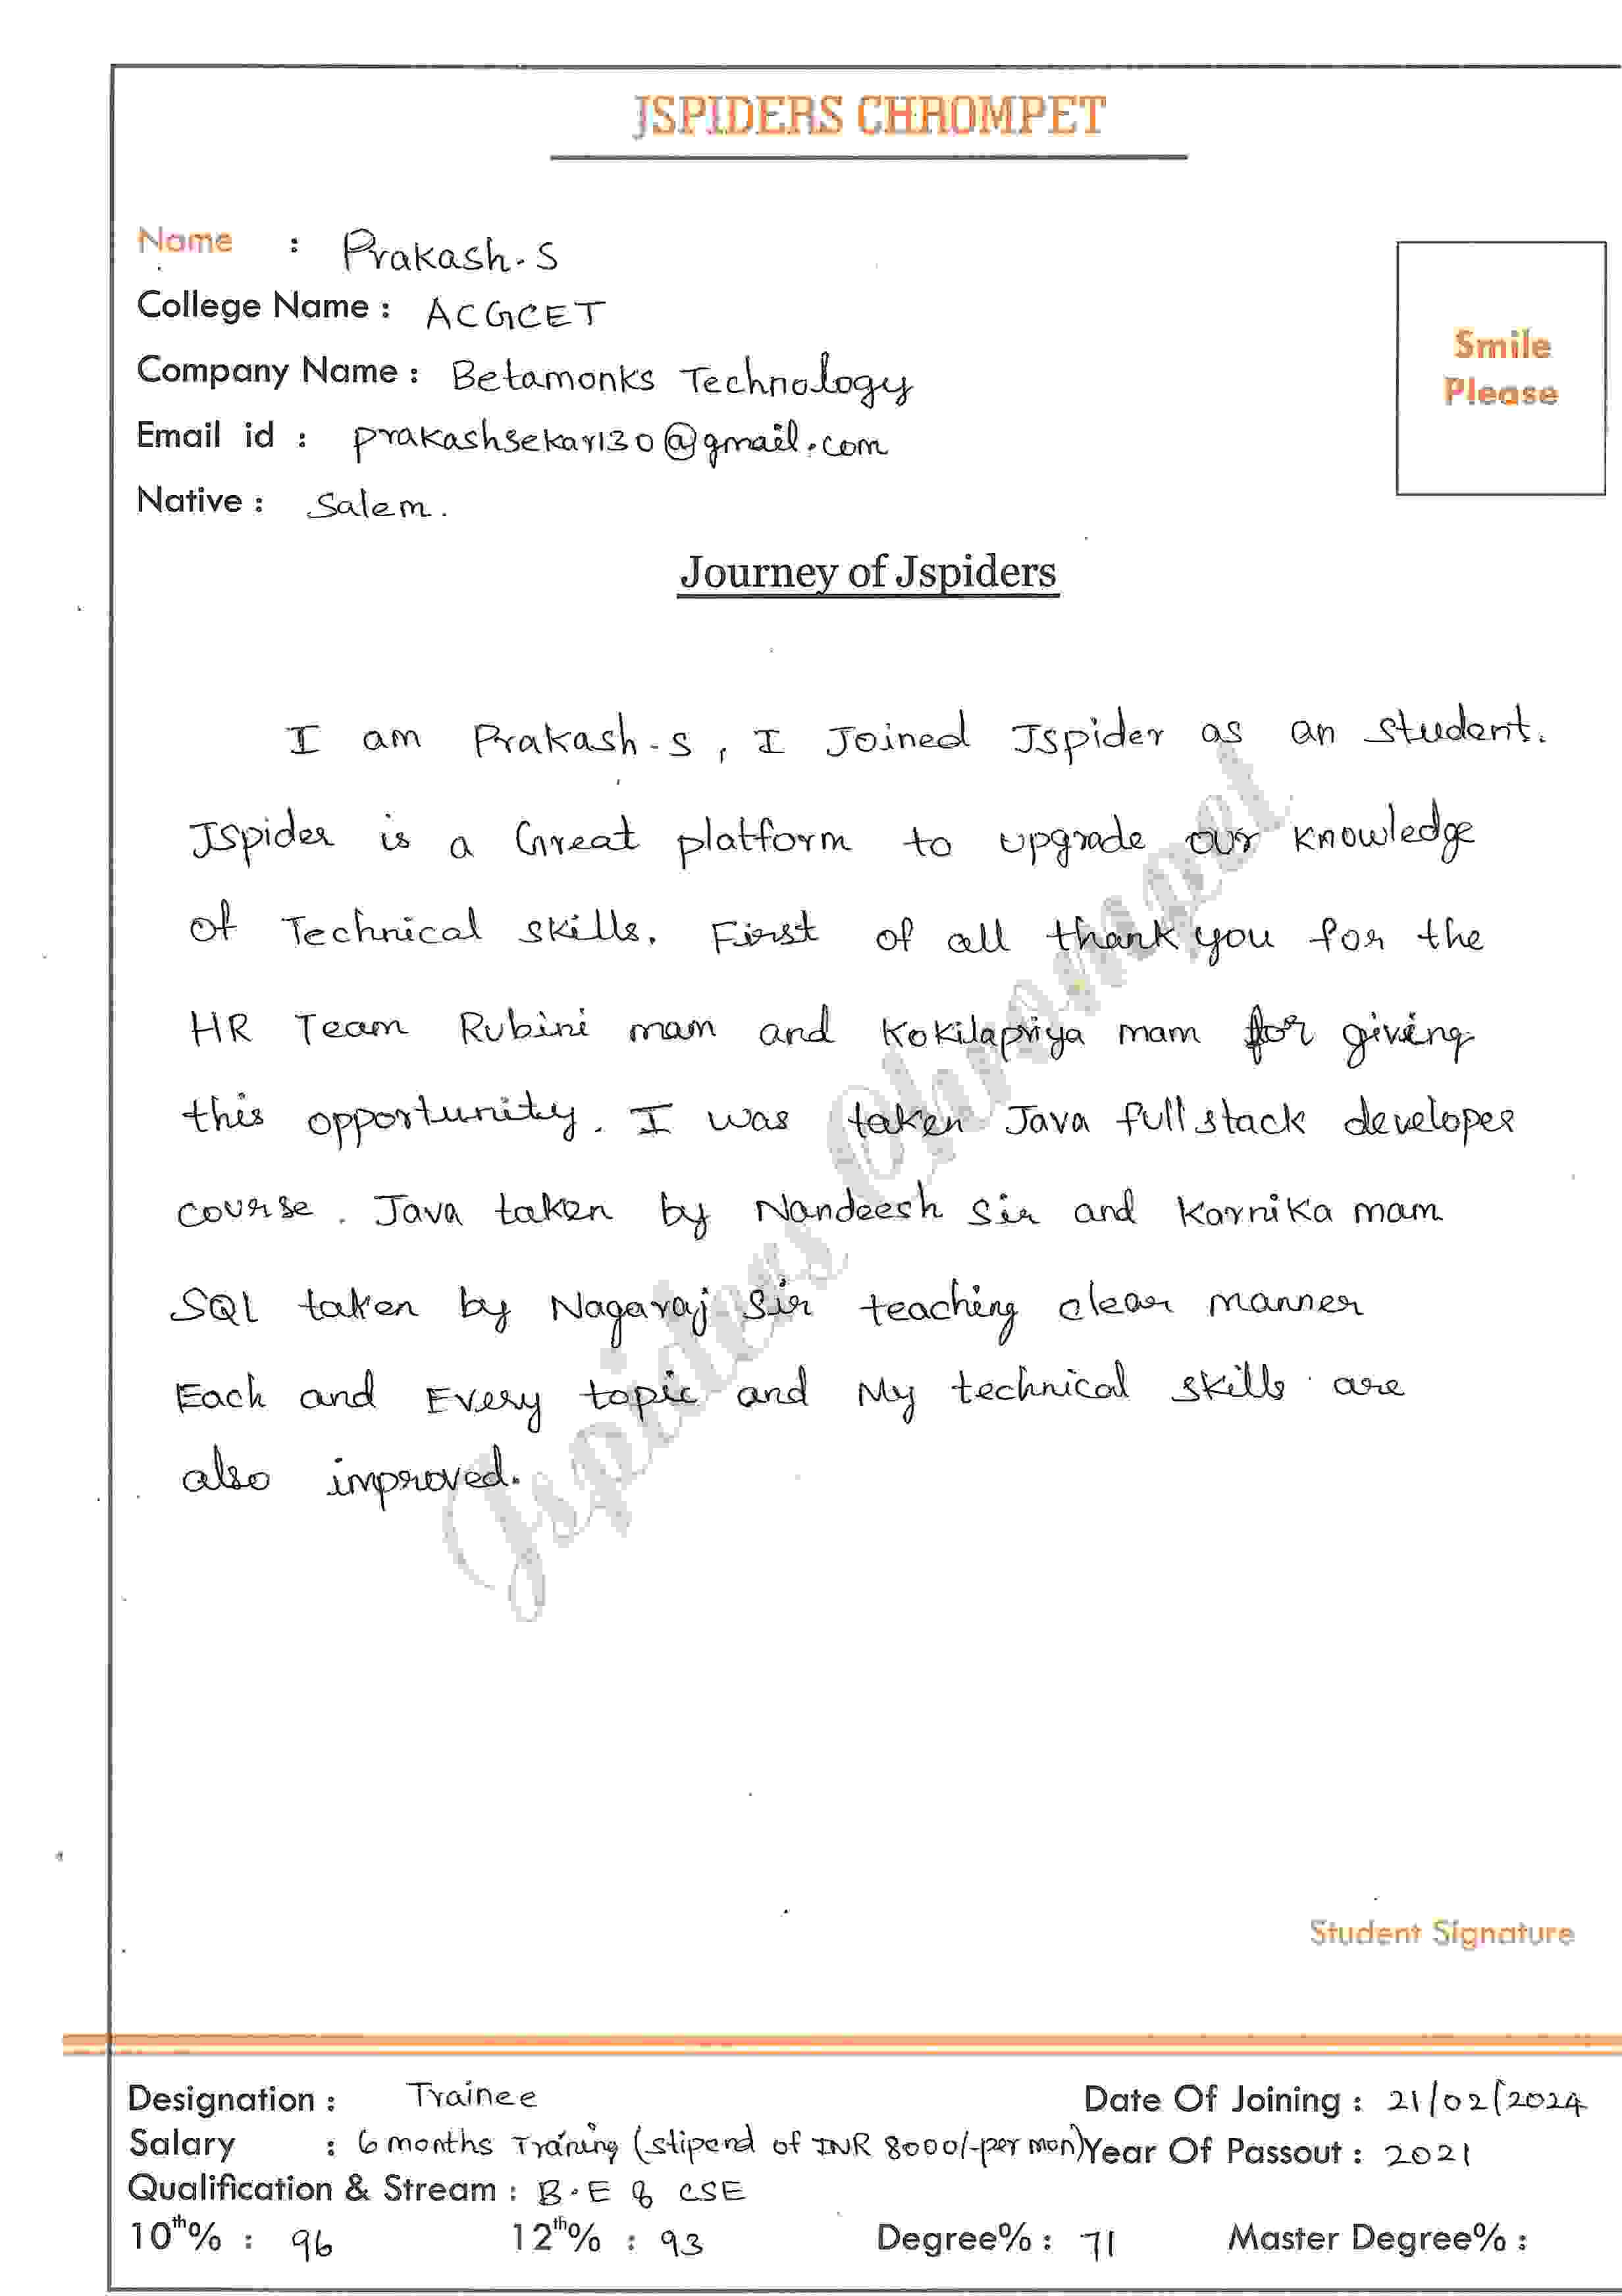 JSPIDERS CHROMPET
Name : Prakash-S
College Name : ACGCET
Company Name : Betamonks Technology
Email id : prakashsekar130@gmail.com
Native : Salem.
Smile
Please
Journey of Jspiders
I am Prakash-S, I Joined Jspider as an student.
Jspider is a Great platform to upgrade our knowledge
of Technical skills. First of all thank you for the
HR Team Rubini mam and Kokilapriya mam for giving
this opportunity. I was taken Java full stack developer
course. Java taken by Nandeesh Sir and Karnika mam
SQL taken by Nagaraj Sir teaching clear manner
Each and Every topic and My technical skills are
also improved.
Jspiders Chrompet
Student Signature
Designation : Trainee Date Of Joining : 21/02/2024
Salary : 6 months Traning (stipend of INR 8000/-per mon) Year Of Passout : 2021
Qualification & Stream : B.E & CSE
10th% : 96 12th% : 93 Degree% : 71 Master Degree% :